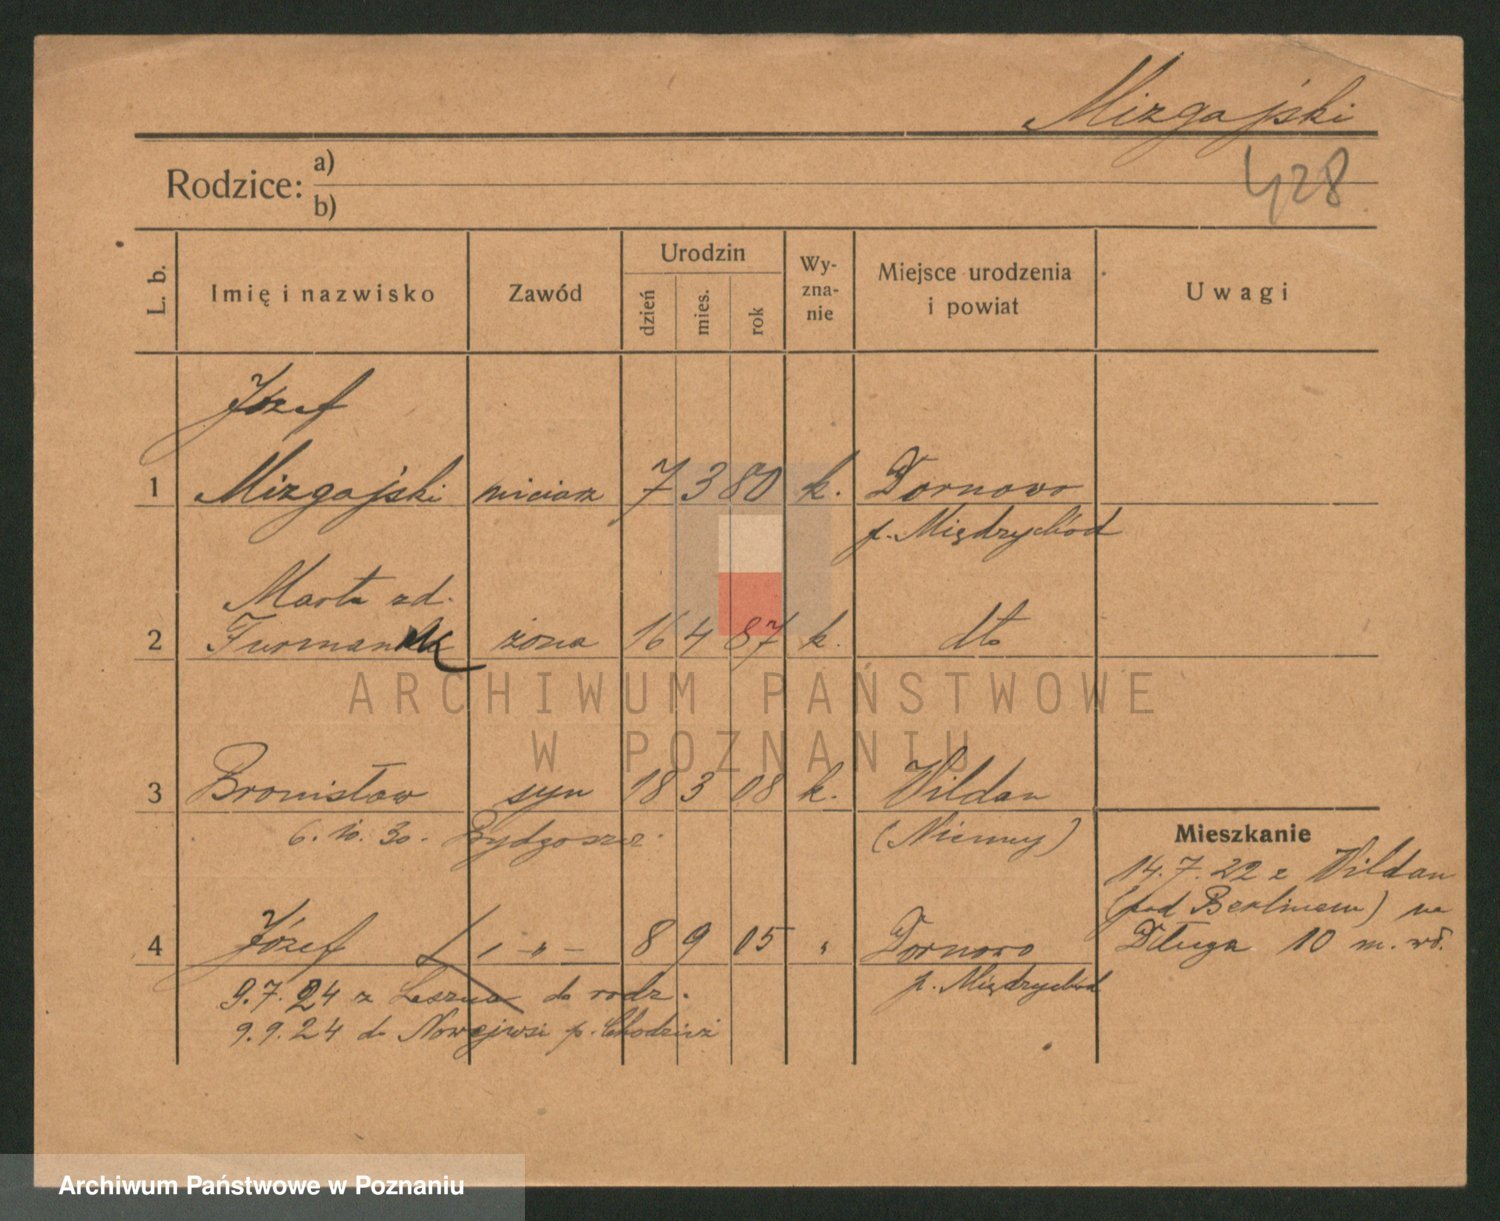 Mizgajski
428
Rodzice: a)
b)
L. b.
Imię i nazwisko
Zawód
Urodzin
dzień
mies.
rok
Wy-
zna-
nie
Miejsce urodzenia
i powiat
Uwagi
Józef
1 Mizgajski 7 3 80 k. Dornowo
p. Międzychód
Marta zd.
2 żona 16 4 87 k. dto
3 Bronisław syn 18 3 08 k. Wildau
6. 10. 30. Bydgoszcz. (Niemcy)
Mieszkanie
14. 7. 22 z Wildau
(pod Berlinem) na
Długa 10 m. wł.
4 Józef - „ - 8 9 05 „ Dornowo
p. Międzychód
9. 7. 24 z Leszna do rodz.
9. 9. 24 do Nowejwsi p. Chodzież
ARCHIWUM PAŃSTWOWE
W POZNANIU
Archiwum Państwowe w Poznaniu